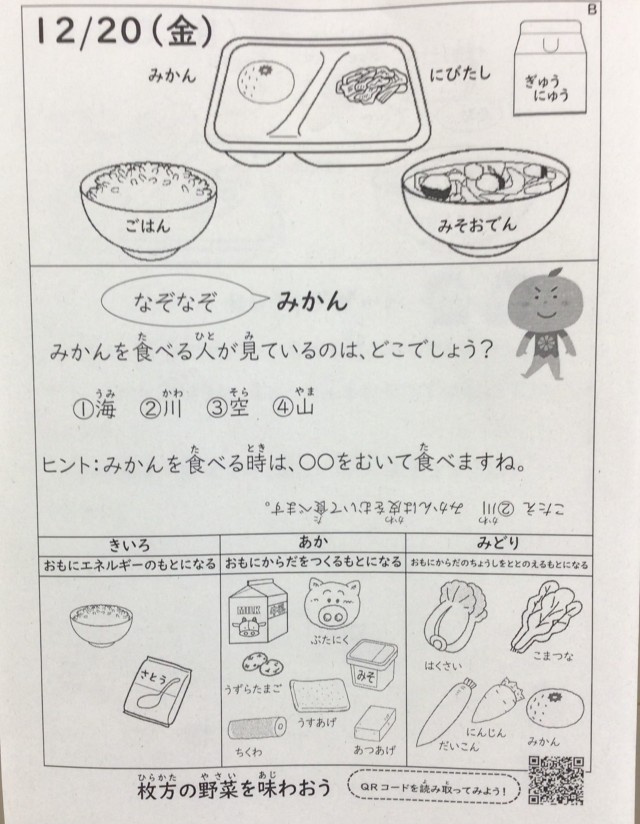 B
12/20(金)
みかん
にびたし
ぎゅう
にゅう
ごはん
みそおでん
なぞなぞ
みかん
みかんを食べる人が見ているのは、どこでしょう？
た ひと み
①海 ②川 ③空 ④山
うみ かわ そら やま
ヒント：みかんを食べる時は、〇〇をむいて食べますね。
た とき た
こたえ ②川 みかんは皮をむいて食べます。
かわ かわ た
きいろ
おもにエネルギーのもとになる
さとう
あか
おもにからだをつくるもとになる
MILK
ぶたにく
うずらたまご
みそ
うすあげ
ちくわ
あつあげ
みどり
おもにからだのちょうしをととのえるもとになる
はくさい
こまつな
だいこん
にんじん
みかん
枚方の野菜を味わおう
ひらかた やさい あじ
QRコードを読み取ってみよう！
よ と